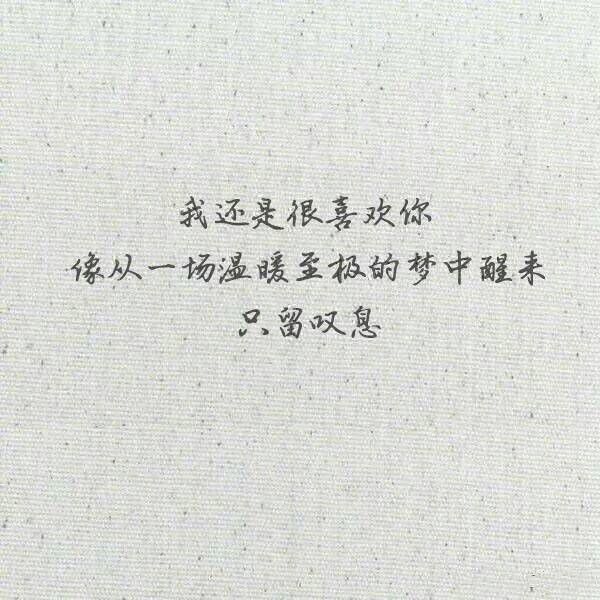 我还是很喜欢你
像从一场温暖至极的梦中醒来
只留叹息